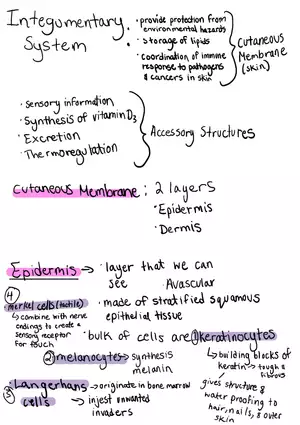 Integumentary
System
• provide protection from
environmental hazards
• storage of lipids
• coordination of immune
response to pathogens
& cancers in skin
Cutaneous
Membrane
(skin)
• sensory information
• Synthesis of vitamin D3
• Excretion
• Thermoregulation
Accessory Structures
Cutaneous Membrane: 2 layers
• Epidermis
• Dermis
Epidermis → • layer that we can
see • Avascular
• made of stratified squamous
epithelial tissue
④
merkel cells (tactile)
↳ combine with nerve
endings to create a
sensory receptor
for touch
• bulk of cells are ① keratinocytes
↳ building blocks of
keratin → tough &
fibrous
↓
gives structure &
water proofing to
hair, nails, & outer
skin
② melanocytes → synthesis
melanin
③ Langerhans
cells
→ originate in bone marrow
↳ injest unwanted
invaders